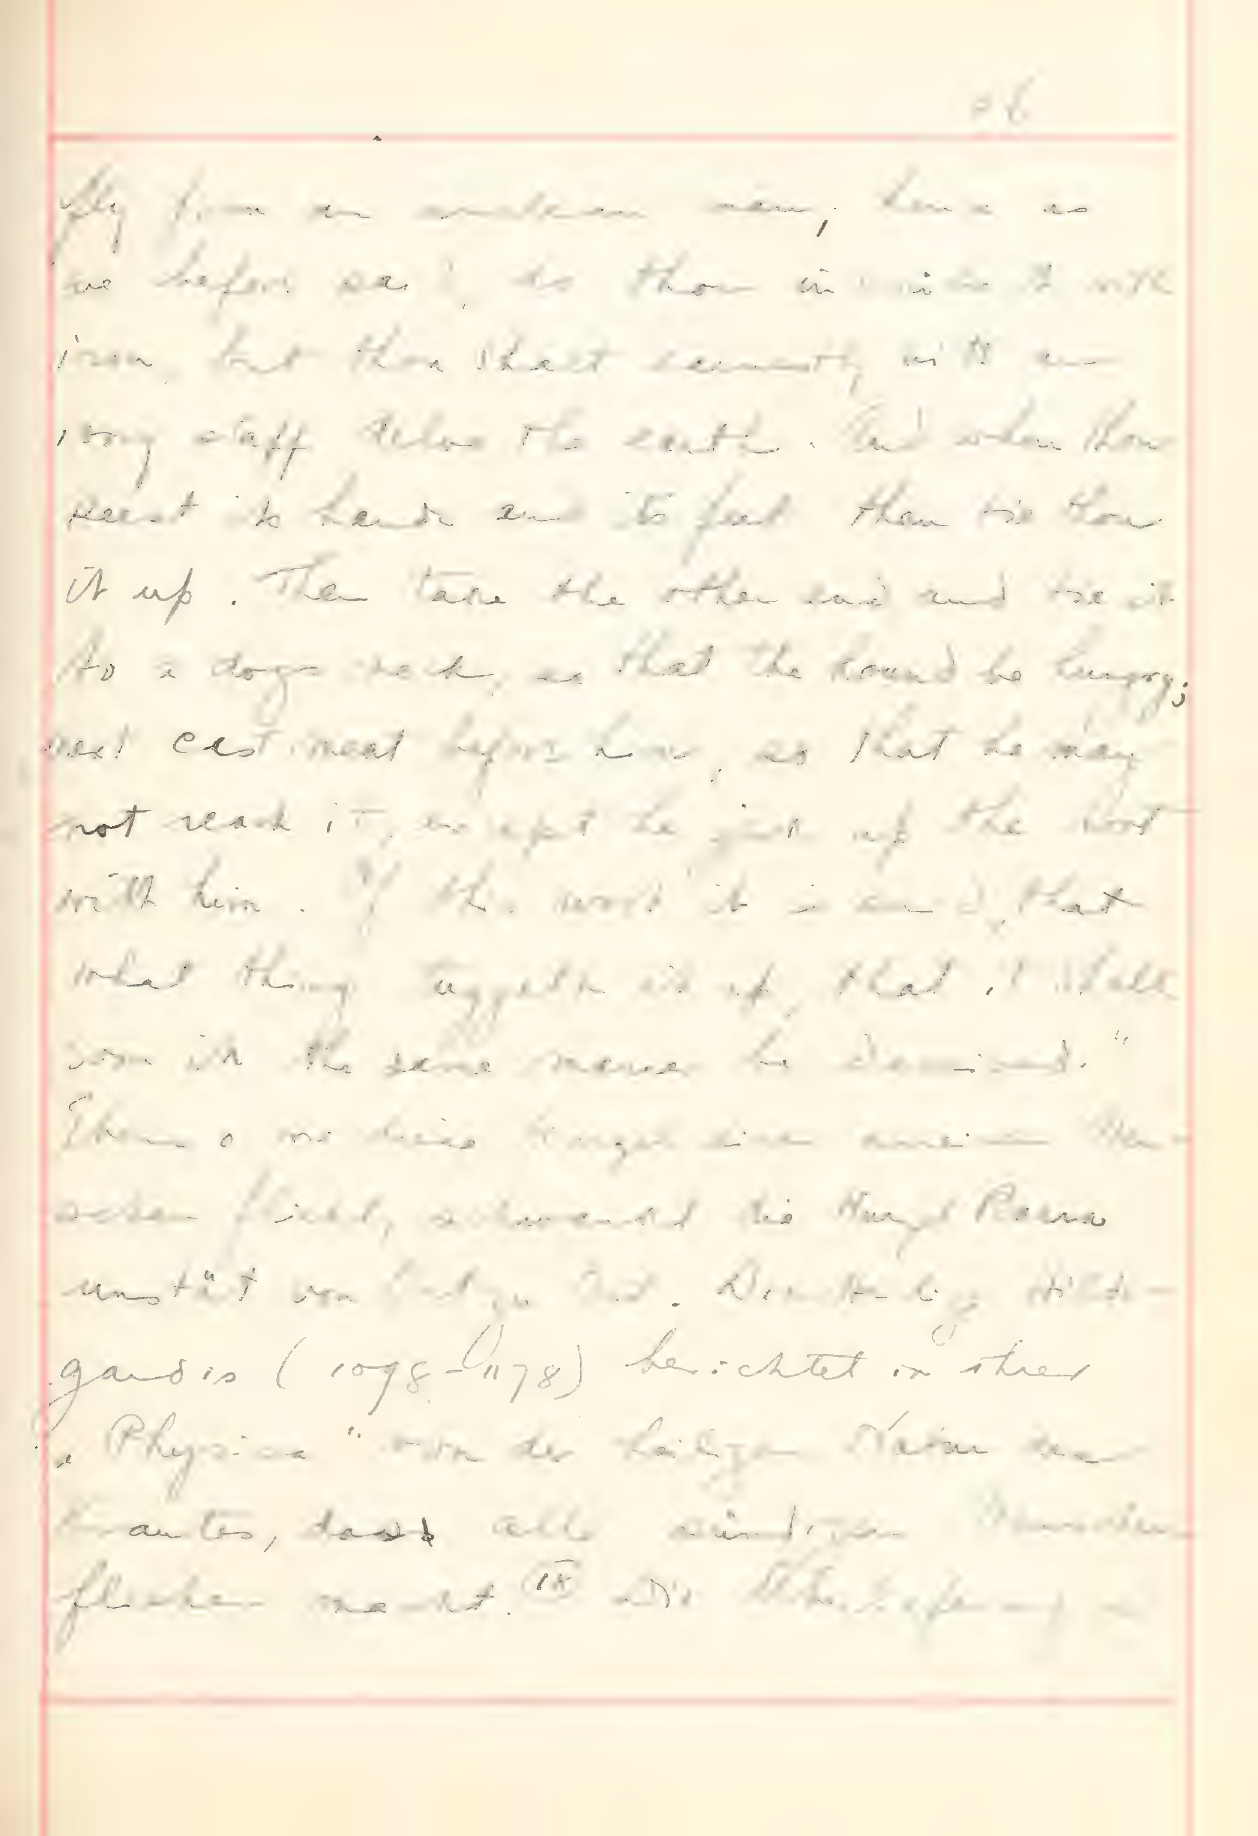 26
fly from an unclean man; hence as
we before said, do thou inscribe it with
iron, but thou shalt earnestly with an
ivory staff delve the earth. And when thou
seest its hands and its feet then tie thou
it up. Then take the other end and tie it
to a dogs neck, so that the hound be hungry;
next cast meat before him, so that he may
not reach it, except he jerk up the root
with him. Of this wort it is said, that
what thing tuggeth it up, that it shall
soon in the same manner be deceived."
Ebenso wie diese Wurzel einen unreinen Men-
schen flieht, die Wurzel Baara
unstät von Ort zu Ort. Die Heilige Hilde-
gardis (1098-1178) berichtet in ihrer
„Physica" von der heiligen Natur des
Krautes, dass alle sündigen Menschen
fliehen macht. Die Überlieferung